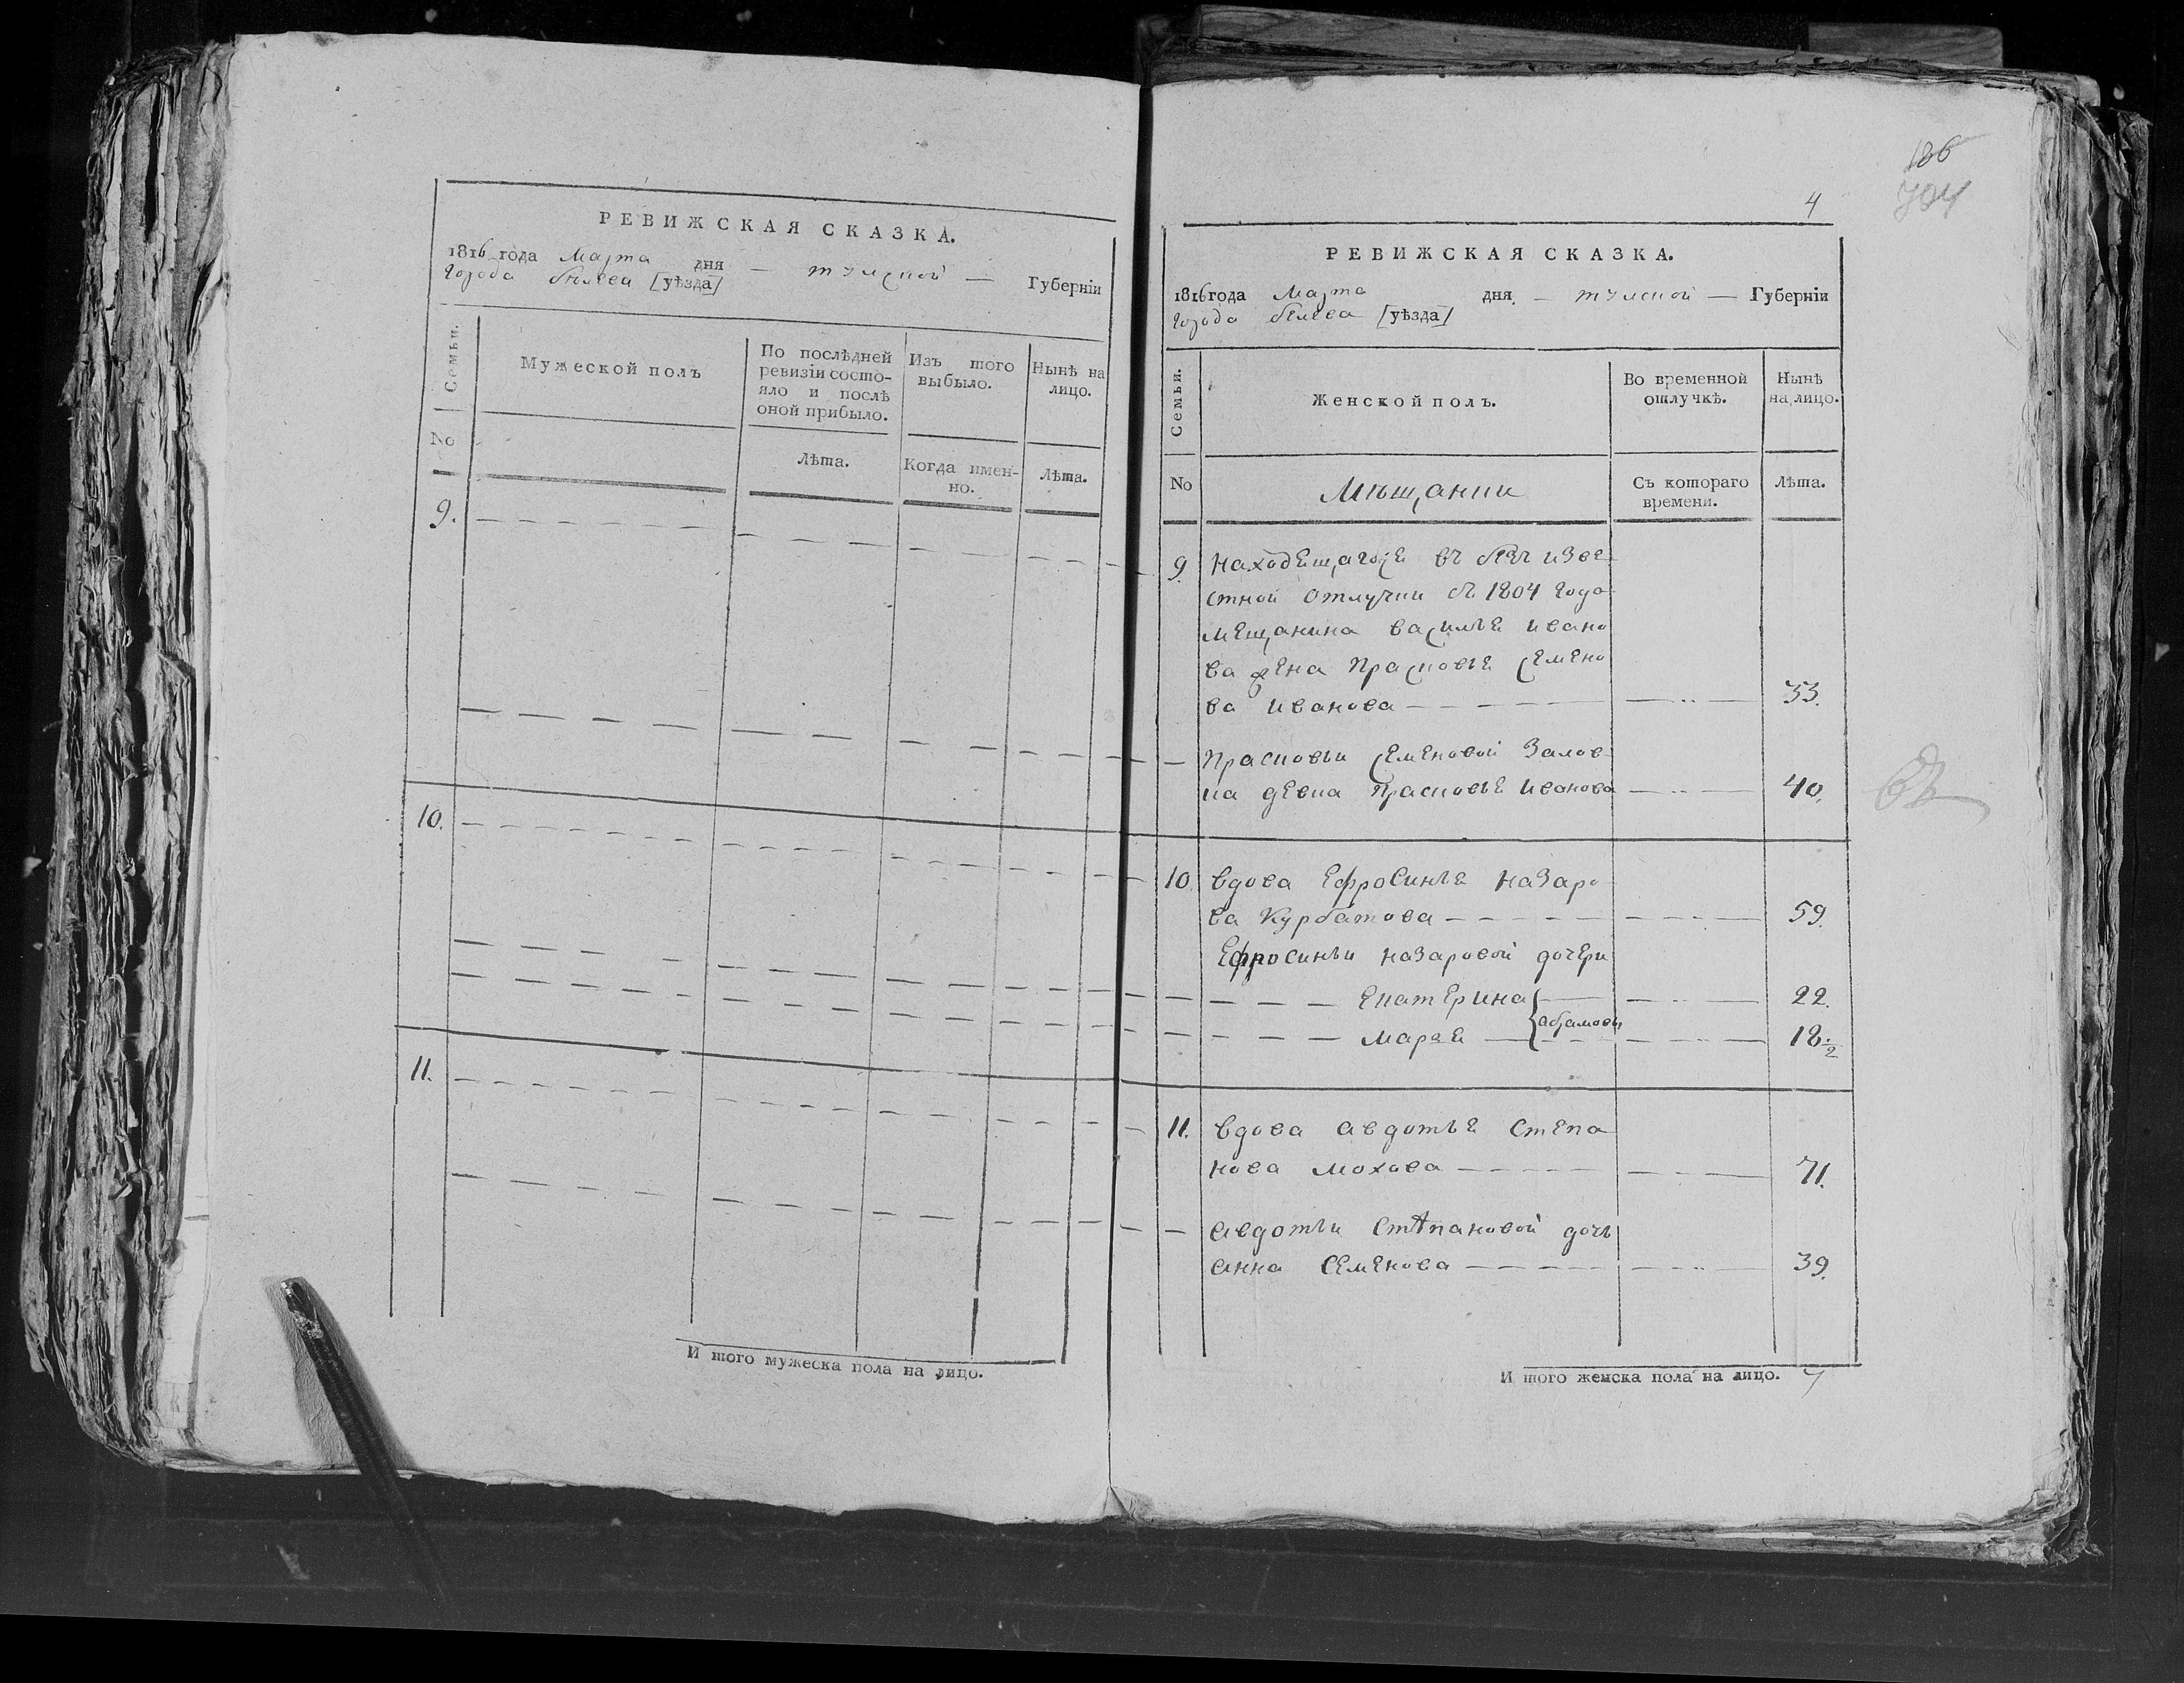 РЕВИЖСКАЯ СКАЗКА.
1816 года Марта дня — тулской — Губерніи
города бѣлева [уѣзда]
Семьи.
Мужеской полъ
По послѣдней ревизіи состояло и послѣ оной прибыло.
Изъ того выбыло.
Нынѣ на лицо.
No
Лѣта.
Когда именно.
Лѣта.
9.
10.
11.
И того мужеска пола на лицо.
186
704
4
РЕВИЖСКАЯ СКАЗКА.
1816 года Марта дня. — тулской — Губерніи
города белева [уѣзда]
Семьи.
Женской полъ.
Во временной отлучкѣ.
Нынѣ на лицо.
No
Мѣщанки
Съ котораго времени.
Лѣта.
9. находещагосе въ безъ изве-
стной отлучки съ 1804 года
мещанина василье ивано
ва жена Прасковье семено
ва иванова 33.
Прасковьи семеновой Залов-
ка девка Прасковье иванова 40.
10. вдова Ефросинье назаро-
ва Курбатова 59.
Ефросиньи назаровой дочери
Екатерина 22.
абрамовы
Марье 18.½
11. вдова авдотье степа
нова мохова 71.
авдотьи степановой дочь
анна семенова 39.
И того женска пола на лицо. 7